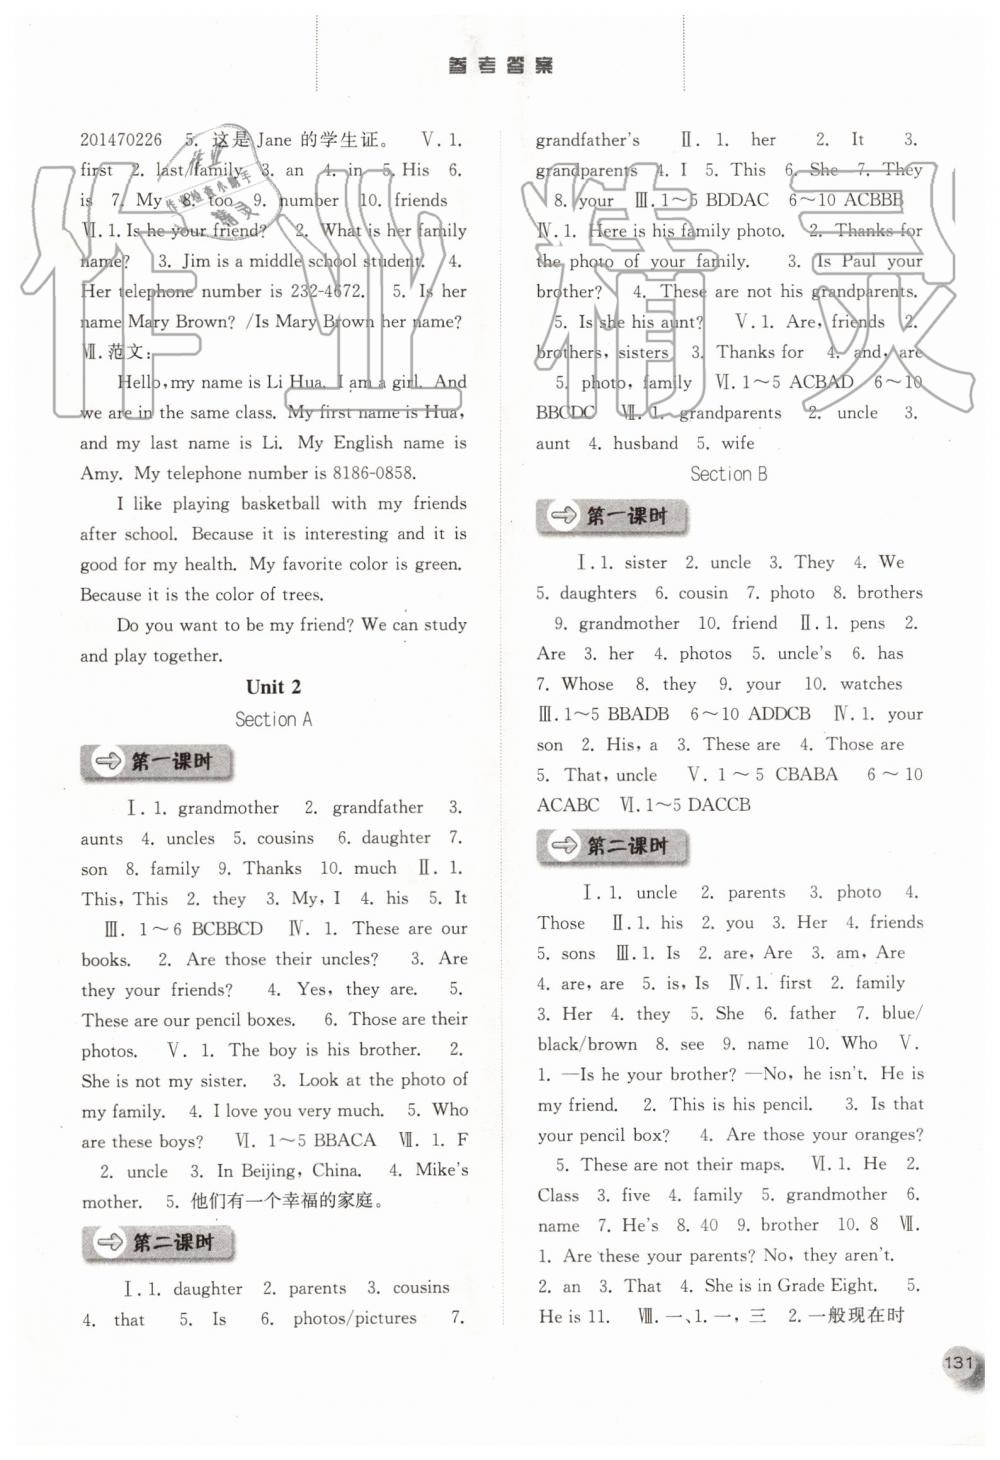 参考答案
201470226 5. 这是 Jane 的学生证。 Ⅴ. 1.
first 2. last/family 3. an 4. in 5. His 6.
is 7. My 8. too 9. number 10. friends
Ⅵ. 1. Is he your friend? 2. What is her family
name? 3. Jim is a middle school student. 4.
Her telephone number is 232-4672. 5. Is her
name Mary Brown? /Is Mary Brown her name?
Ⅶ. 范文:
Hello, my name is Li Hua. I am a girl. And
we are in the same class. My first name is Hua,
and my last name is Li. My English name is
Amy. My telephone number is 8186-0858.
I like playing basketball with my friends
after school. Because it is interesting and it is
good for my health. My favorite color is green.
Because it is the color of trees.
Do you want to be my friend? We can study
and play together.
Unit 2
Section A
第一课时
Ⅰ. 1. grandmother 2. grandfather 3.
aunts 4. uncles 5. cousins 6. daughter 7.
son 8. family 9. Thanks 10. much Ⅱ. 1.
This, This 2. they 3. My, I 4. his 5. It
Ⅲ. 1~6 BCBBCD Ⅳ. 1. These are our
books. 2. Are those their uncles? 3. Are
they your friends? 4. Yes, they are. 5.
These are our pencil boxes. 6. Those are their
photos. Ⅴ. 1. The boy is his brother. 2.
She is not my sister. 3. Look at the photo of
my family. 4. I love you very much. 5. Who
are these boys? Ⅵ. 1~5 BBACA Ⅶ. 1. F
2. uncle 3. In Beijing, China. 4. Mike's
mother. 5. 他们有一个幸福的家庭。
第二课时
Ⅰ. 1. daughter 2. parents 3. cousins
4. that 5. Is 6. photos/pictures 7.
grandfather's Ⅱ. 1. her 2. It 3.
grandparents 4. I 5. This 6. She 7. They
8. your Ⅲ. 1~5 BDDAC 6~10 ACBBB
Ⅳ. 1. Here is his family photo. 2. Thanks for
the photo of your family. 3. Is Paul your
brother? 4. These are not his grandparents.
5. Is she his aunt? Ⅴ. 1. Are, friends 2.
brothers, sisters 3. Thanks for 4. and, are
5. photo, family Ⅵ. 1~5 ACBAD 6~10
BBCDC Ⅶ. 1. grandparents 2. uncle 3.
aunt 4. husband 5. wife
Section B
第一课时
Ⅰ. 1. sister 2. uncle 3. They 4. We
5. daughters 6. cousin 7. photo 8. brothers
9. grandmother 10. friend Ⅱ. 1. pens 2.
Are 3. her 4. photos 5. uncle's 6. has
7. Whose 8. they 9. your 10. watches
Ⅲ. 1~5 BBADB 6~10 ADDCB Ⅳ. 1. your
son 2. His, a 3. These are 4. Those are
5. That, uncle Ⅴ. 1~5 CBABA 6~10
ACABC Ⅵ. 1~5 DACCB
第二课时
Ⅰ. 1. uncle 2. parents 3. photo 4.
Those Ⅱ. 1. his 2. you 3. Her 4. friends
5. sons Ⅲ. 1. Is 2. are, Are 3. am, Are
4. are, are 5. is, Is Ⅳ. 1. first 2. family
3. Her 4. they 5. She 6. father 7. blue/
black/brown 8. see 9. name 10. Who Ⅴ.
1. —Is he your brother? —No, he isn't. He is
my friend. 2. This is his pencil. 3. Is that
your pencil box? 4. Are those your oranges?
5. These are not their maps. Ⅵ. 1. He 2.
Class 3. five 4. family 5. grandmother 6.
name 7. He's 8. 40 9. brother 10. 8 Ⅶ.
1. Are these your parents? No, they aren't.
2. an 3. That 4. She is in Grade Eight. 5.
He is 11. Ⅷ. 一、1. 一, 三 2. 一般现在时
131
作业精灵
作业
作业检查小助手
精灵